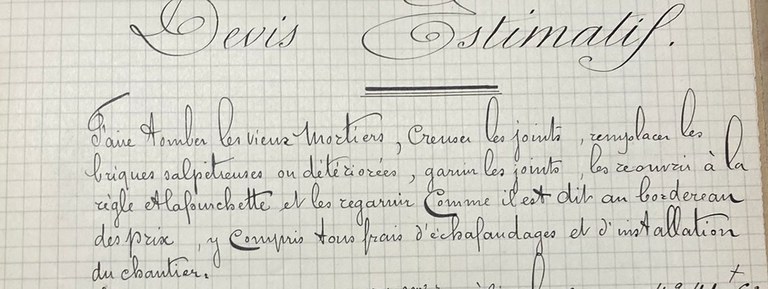 Devis Estimatif.
Faire tomber les vieux mortiers, creuser les joints, remplacer les
briques salpêtreuses ou détériorées, garnir les joints, les recouvrir à la
règle et la fourchette et les regarnir comme il est dit au bordereau
des prix, y compris tous frais d'échafaudages et d'installation
du chantier.